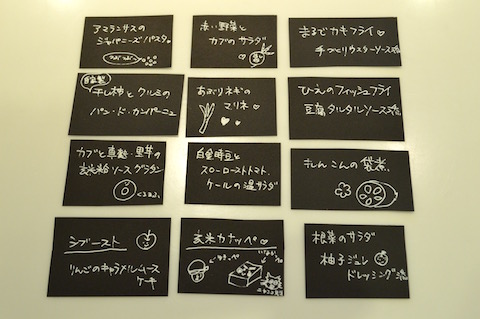 アマランサスの
ジャパニーズパスタ
赤い野菜と
カブのサラダ
まるでカキフライ
手づくりウスターソース添
自家製
干し柿とクルミの
パン・ド・カンパーニュ
あぶりネギの
マリネ
ひえのフィッシュフライ
豆腐タルタルソース添
カブと車麩・里芋の
玄米粉ソースグラタン
くるまふ
自家豆と
スローローストトマト、
ケールの温サラダ
れんこんの袋煮
シブースト
りんごのキャラメルムース
ケーキ
玄米カナッペ
根菜のサラダ
柚子ジュレ
ドレッシング